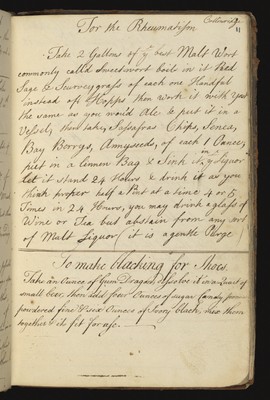 Collowridge
11
For the Rheumatism
Take 2 Gallons of ye best Malt Wort
commonly calld Sweetwort boile in it Read
Sage & Scurveygrass of each one Handful
instead off Hopps then work it with Yest
the same as you would Ale & put it in a
Vessel, then take, Sasafras Chips, Senea,
Bay Berrys, Annyseeds, of each 1 Ounce,
put in a linnen Bag & Sink it in ye Liquor
let it stand 24 Hours & drink it as you
think proper half a Pint at a time 4 or 5
Times in 24 Hours, you may drink a glass of
Wine or Tea but abstain from any sort
of Malt Liquor (it is a gentle Purge
To make blacking for Shoes.
Take an Ounce of Gum Dragon, dissolve it in a Quart of
small beer, then add four Ounces of sugar Candy
powdered fine & six Ounces of Ivory black, mix these
together & its fit for use.